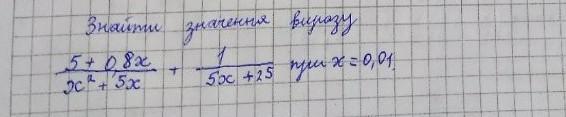 Знайти значення виразу
5 + 0,8x / x² + 5x + 1 / 5x + 25 при x = 0,01.